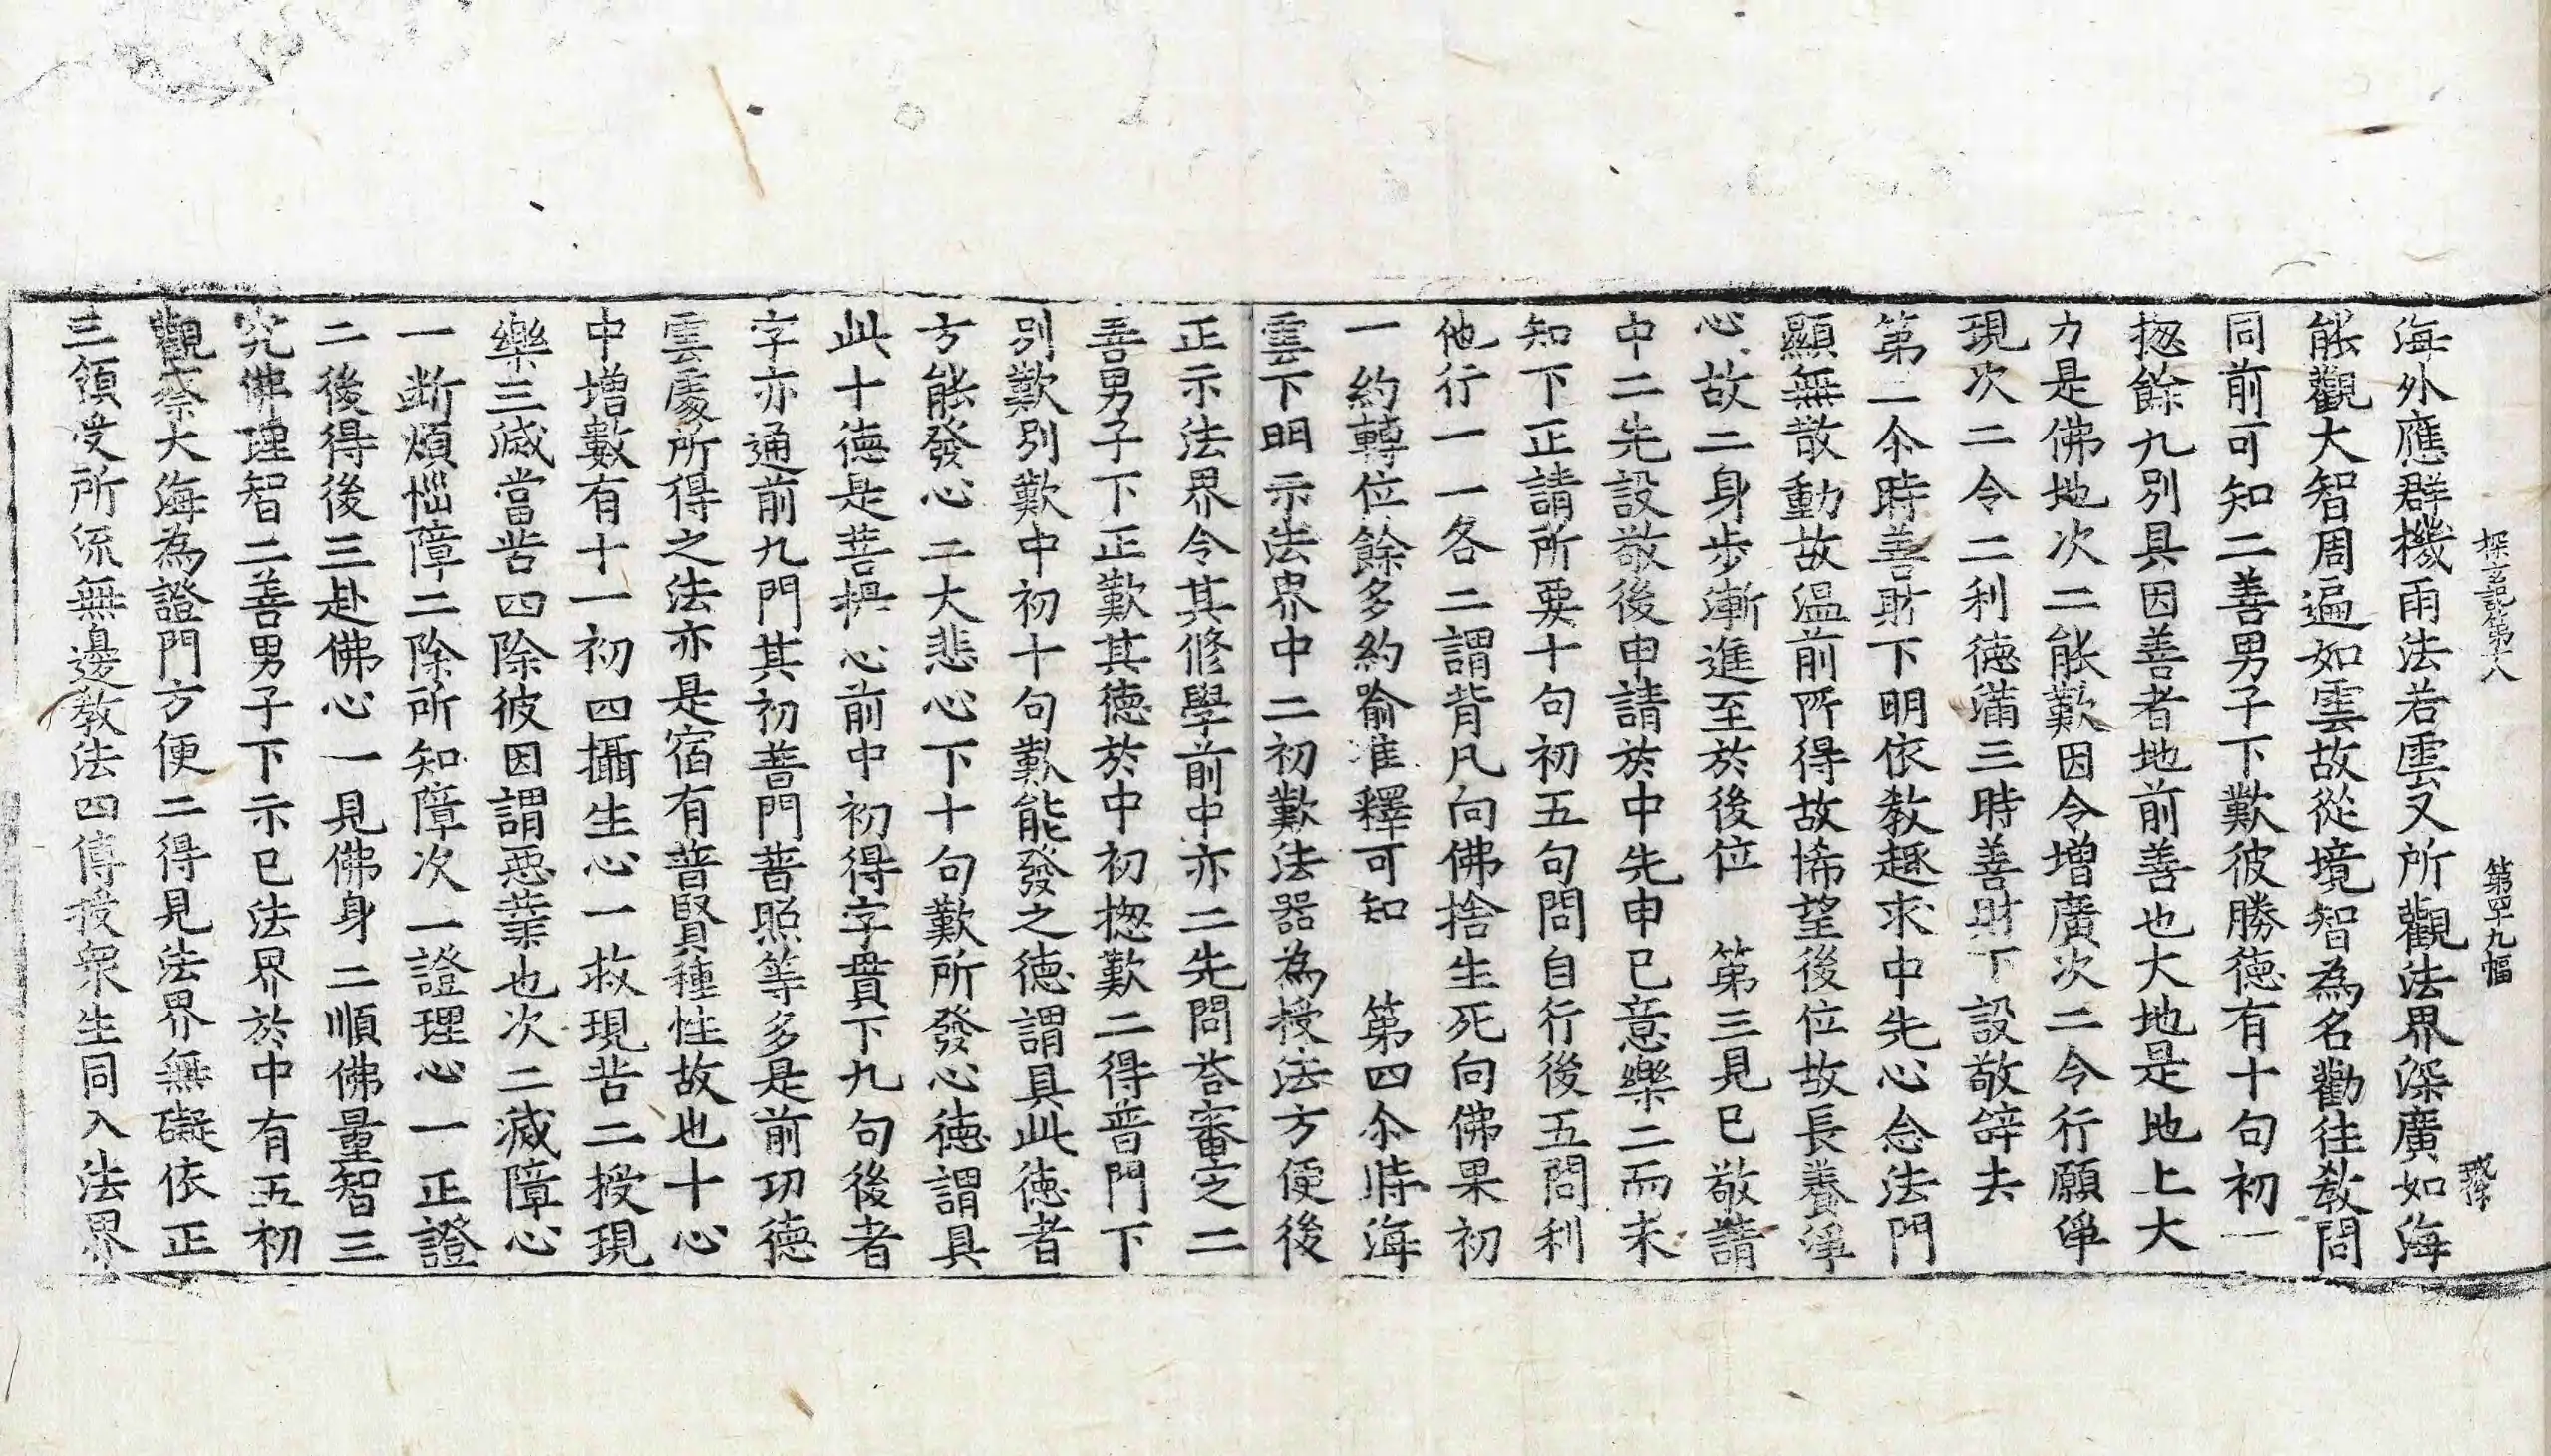 探玄記第八　第四十九幅
海外應群機雨法若雲又所觀法界深廣如海
能觀大智周遍如雲故從境智為名勸往敎問
同前可知二善男子下歎彼勝徳有十句初一
揔餘九別具因善者地前善也大地是地上大
力是佛地次二能歎因令增廣次二令行願爭
現次二令二利德滿三時善財下設敬辝去
第二尒時善財下明依敎趣求中先心念法門
顯無散動故温前所得故悕望後位故長養淨
心故二身步漸進至於後位　第三見已敬請
中二先設敬後申請於中先申已意樂二而未
知下正請所要十句初五句問自行後五問利
他行一一各二謂背凡向佛捨生死向佛果初
一約轉位餘多約喻准釋可知　第四尒時海
雲下明示法界中二初歎法器為授法方便後
正示法界令其修學前中亦二先問荅審㝎二
善男子下正歎其徳於中初揔歎二得普門下
别歎别歎中初十句歎能發之徳謂具此徳者
方能發心二大悲心下十句歎所發心徳謂具
此十徳是菩提心前中初得字貫下九句後者
字亦通前九門其初普門普照等多是前功徳
雲處所得之法亦是宿有普賢種性故也十心
中增數有十一初四攝生心一救現苦二授現
樂三滅當苦四除彼因謂惡業也次二滅障心
一斷煩惱障二除所知障次一證理心一正證
二後得後三赴佛心一見佛身二順佛量智三
究佛理智二善男子下示已法界於中有五初
觀察大海為證門方便二得見法界無礙依正
三領受所流無邊敎法四傳授衆生同入法界